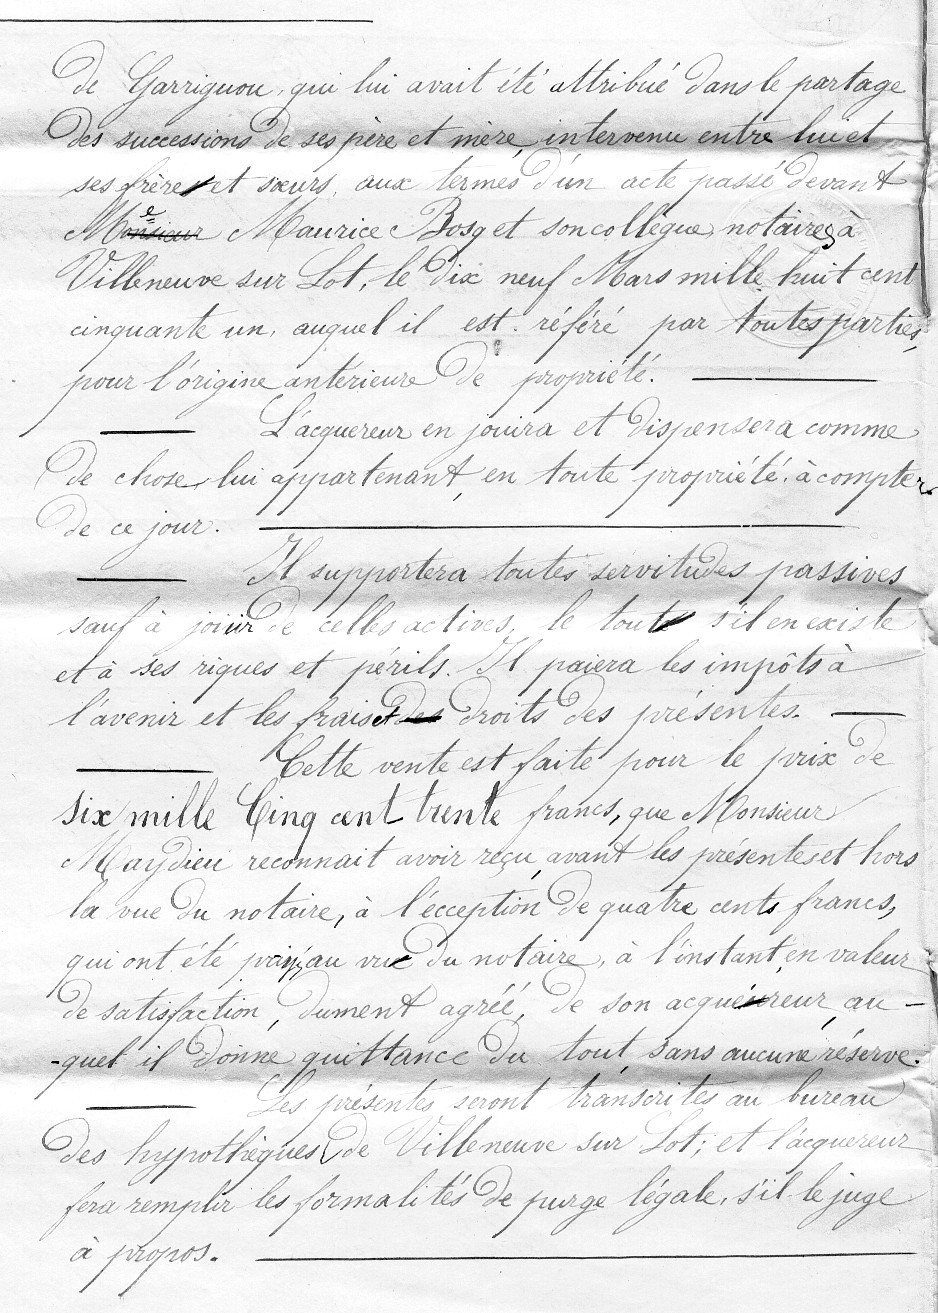 de Garrignou, qui lui avait été attribué dans le partage
des successions de ses père et mère, intervenu entre lui et
ses frère et sœurs, aux termes d'un acte passé devant
Me Maurice Bosq et son collègue, notaires à
Villeneuve sur Lot, le dix neuf Mars mille huit cent
cinquante un, auquel il est référé par toutes parties,
pour l'origine antérieure de propriété.
L'acquereur en jouira et dispensera comme
de chose lui appartenant, en toute propriété, à compter
de ce jour.
Il supportera toutes servitudes passives
sauf à jouir de celles actives, le tout s'il en existe
et à ses riques et périls. Il paiera les impôts à
l'avenir et les frais et droits des présentes.
Cette vente est faite pour le prix de
six mille Cinq cent trente francs, que Monsieur
Maydieu reconnait avoir reçu, avant les présentes et hors
la vue du notaire, à l'écception de quatre cents francs,
qui ont été au vue du notaire, à l'instant, en valeur
de satisfaction, dument agréé, de son acquéreur, au-
-quel il donne quittance du tout sans aucune réserve.
Les présentes seront transcrites au bureau
des hypothèques de Villeneuve sur Lot; et l'acquereur
fera remplir les formalités de purge légale, s'il le juge
à propos.